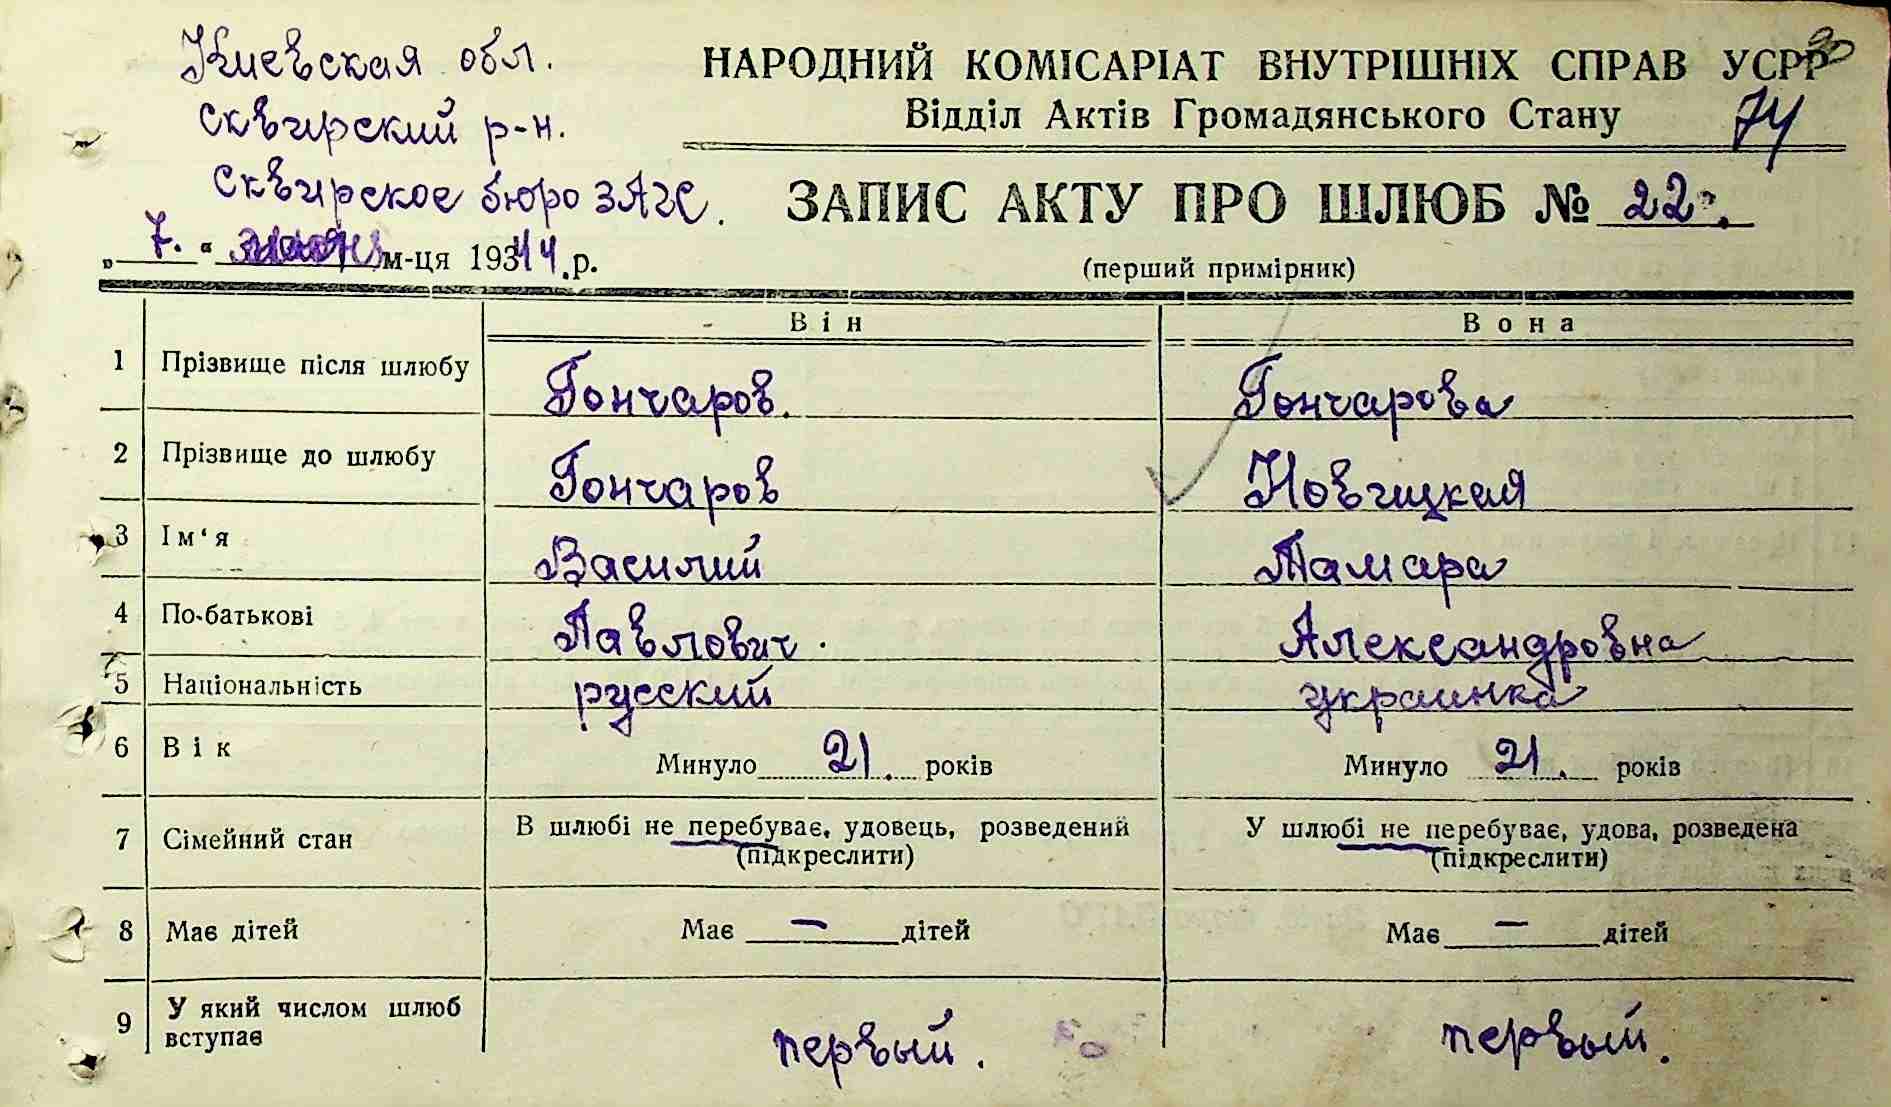 Киевская обл.
Сквирский р-н.
Сквирское бюро ЗАГС.
НАРОДНИЙ КОМІСАРІАТ ВНУТРІШНІХ СПРАВ УСРР
30
Відділ Актів Громадянського Стану
74
ЗАПИС АКТУ ПРО ШЛЮБ № 22.
„ 7. " м-ця 1944.р.
(перший примірник)
Він Вона
1 Прізвище після шлюбу Гончаров. Гончарова
2 Прізвище до шлюбу Гончаров Новицкая
3 Ім'я Василий Тамара
4 По-батькові Павлович. Александровна
5 Національність русский украинка
6 Вік Минуло 21. років Минуло 21. років
7 Сімейний стан В шлюбі не перебуває, удовець, розведений У шлюбі не перебуває, удова, розведена
(підкреслити) (підкреслити)
8 Має дітей Має — дітей Має — дітей
9 У який числом шлюб
вступає первый. первый.